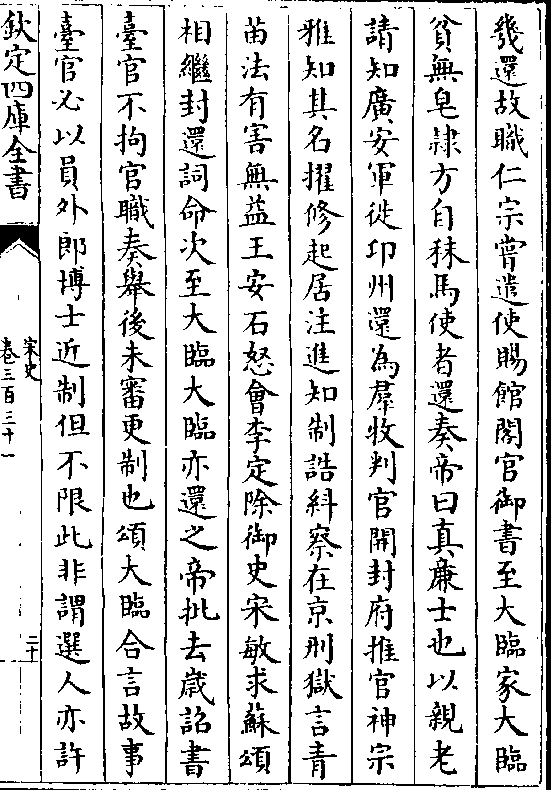 幾還故職仁宗嘗遣使賜館閣官御書至大臨家大臨
貧無皂隷方自秣馬使者還奏帝曰真亷士也以親老
請知廣安軍徙卭州還為羣牧判官開封府推官神宗
雅知其名擢修起居注進知制誥糾察在京刑獄言青
苗法有害無益王安石怒會李定除御史宋敏求蘇頌
相繼封還詞命次至大臨大臨亦還之帝批去歲詔書
臺官不拘官職奏舉後未審更制也頌大臨合言故事
臺官必以員外郎博士近制但不限此非謂選人亦許
欽定四庫全書
宋史
卷三百三十一
二十